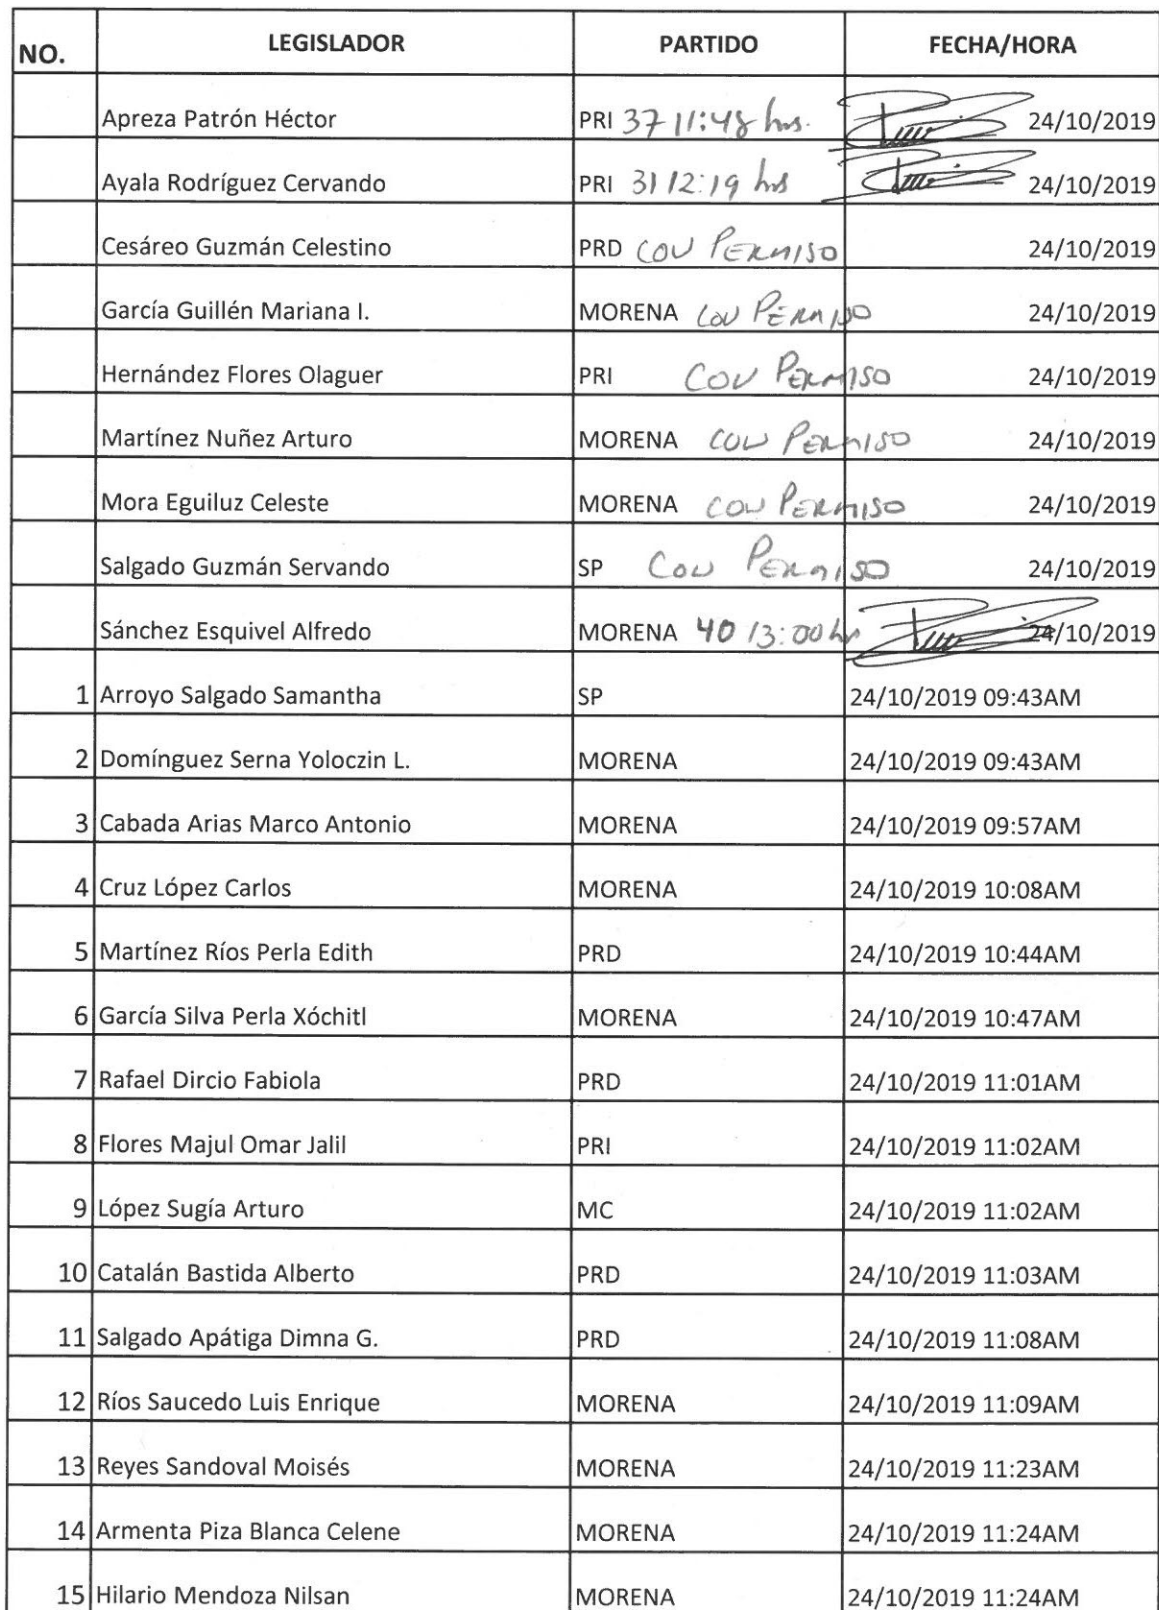 NO. LEGISLADOR PARTIDO FECHA/HORA
Apreza Patrón Héctor PRI 37 11:48 hrs. 24/10/2019
Ayala Rodríguez Cervando PRI 31 12:19 hrs 24/10/2019
Cesáreo Guzmán Celestino PRD CON PERMISO 24/10/2019
García Guillén Mariana I. MORENA CON PERMISO 24/10/2019
Hernández Flores Olaguer PRI CON PERMISO 24/10/2019
Martínez Nuñez Arturo MORENA CON PERMISO 24/10/2019
Mora Eguiluz Celeste MORENA CON PERMISO 24/10/2019
Salgado Guzmán Servando SP CON PERMISO 24/10/2019
Sánchez Esquivel Alfredo MORENA 40 13:00 hr 24/10/2019
1 Arroyo Salgado Samantha SP 24/10/2019 09:43AM
2 Domínguez Serna Yoloczin L. MORENA 24/10/2019 09:43AM
3 Cabada Arias Marco Antonio MORENA 24/10/2019 09:57AM
4 Cruz López Carlos MORENA 24/10/2019 10:08AM
5 Martínez Ríos Perla Edith PRD 24/10/2019 10:44AM
6 García Silva Perla Xóchitl MORENA 24/10/2019 10:47AM
7 Rafael Dircio Fabiola PRD 24/10/2019 11:01AM
8 Flores Majul Omar Jalil PRI 24/10/2019 11:02AM
9 López Sugía Arturo MC 24/10/2019 11:02AM
10 Catalán Bastida Alberto PRD 24/10/2019 11:03AM
11 Salgado Apátiga Dimna G. PRD 24/10/2019 11:08AM
12 Ríos Saucedo Luis Enrique MORENA 24/10/2019 11:09AM
13 Reyes Sandoval Moisés MORENA 24/10/2019 11:23AM
14 Armenta Piza Blanca Celene MORENA 24/10/2019 11:24AM
15 Hilario Mendoza Nilsan MORENA 24/10/2019 11:24AM